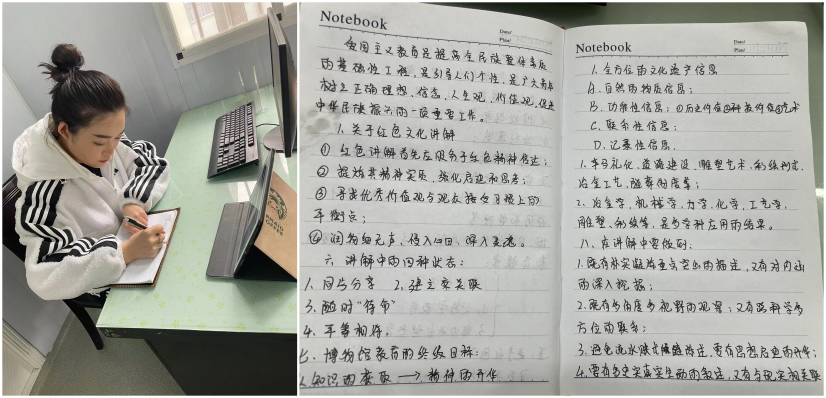 Notebook
Date/
Plan/
爱国主义教育是提高全民族整体素质
的基础性工程,是引导人们个性,是广大青年
树立正确理想、信念、人生观、价值观,促进
中华民族振兴的一项重要工作。
1.关于红色文化讲解
① 红色讲解首先在服务于红色精神传达;
② 提炼其精神实质,强化启迪和思考;
③ 寻找优秀价值观与观众接受习惯上的
平衡点;
④ 润物细无声,侵入心田,深入灵魂。
六、讲解中的四种状态:
1.同与分享 2.建立实关联
3.随时“待命”
4.平等相待。
七、博物馆教育的终级目标:
知识的获取 → 精神的升华
Notebook
Date/
Plan/
1.全方位的文化遗产信息
A.自然的物质信息;
B.功能性信息:①历史价值②科技价值③艺术
C.联系性信息;
D.记录性信息.
1.车马礼仪、道路建设、雕塑艺术、彩绘形式、
冶金工艺、随葬的度等;
2.冶金学、机械学、力学、化学、工艺学、
雕塑、彩绘等,是多学科应用的结果。
八、在讲解中要做到:
1.既有朴实凝炼重点突出的描述,又有对内涵
的深入挖掘;
2.既有多角度多视野的观察;又有跨科学多
方位的联系;
3.避免流水账式叙述,要有思想启迪的升华;
4.要有多史实真实生动的叙述,又有与现实相关联